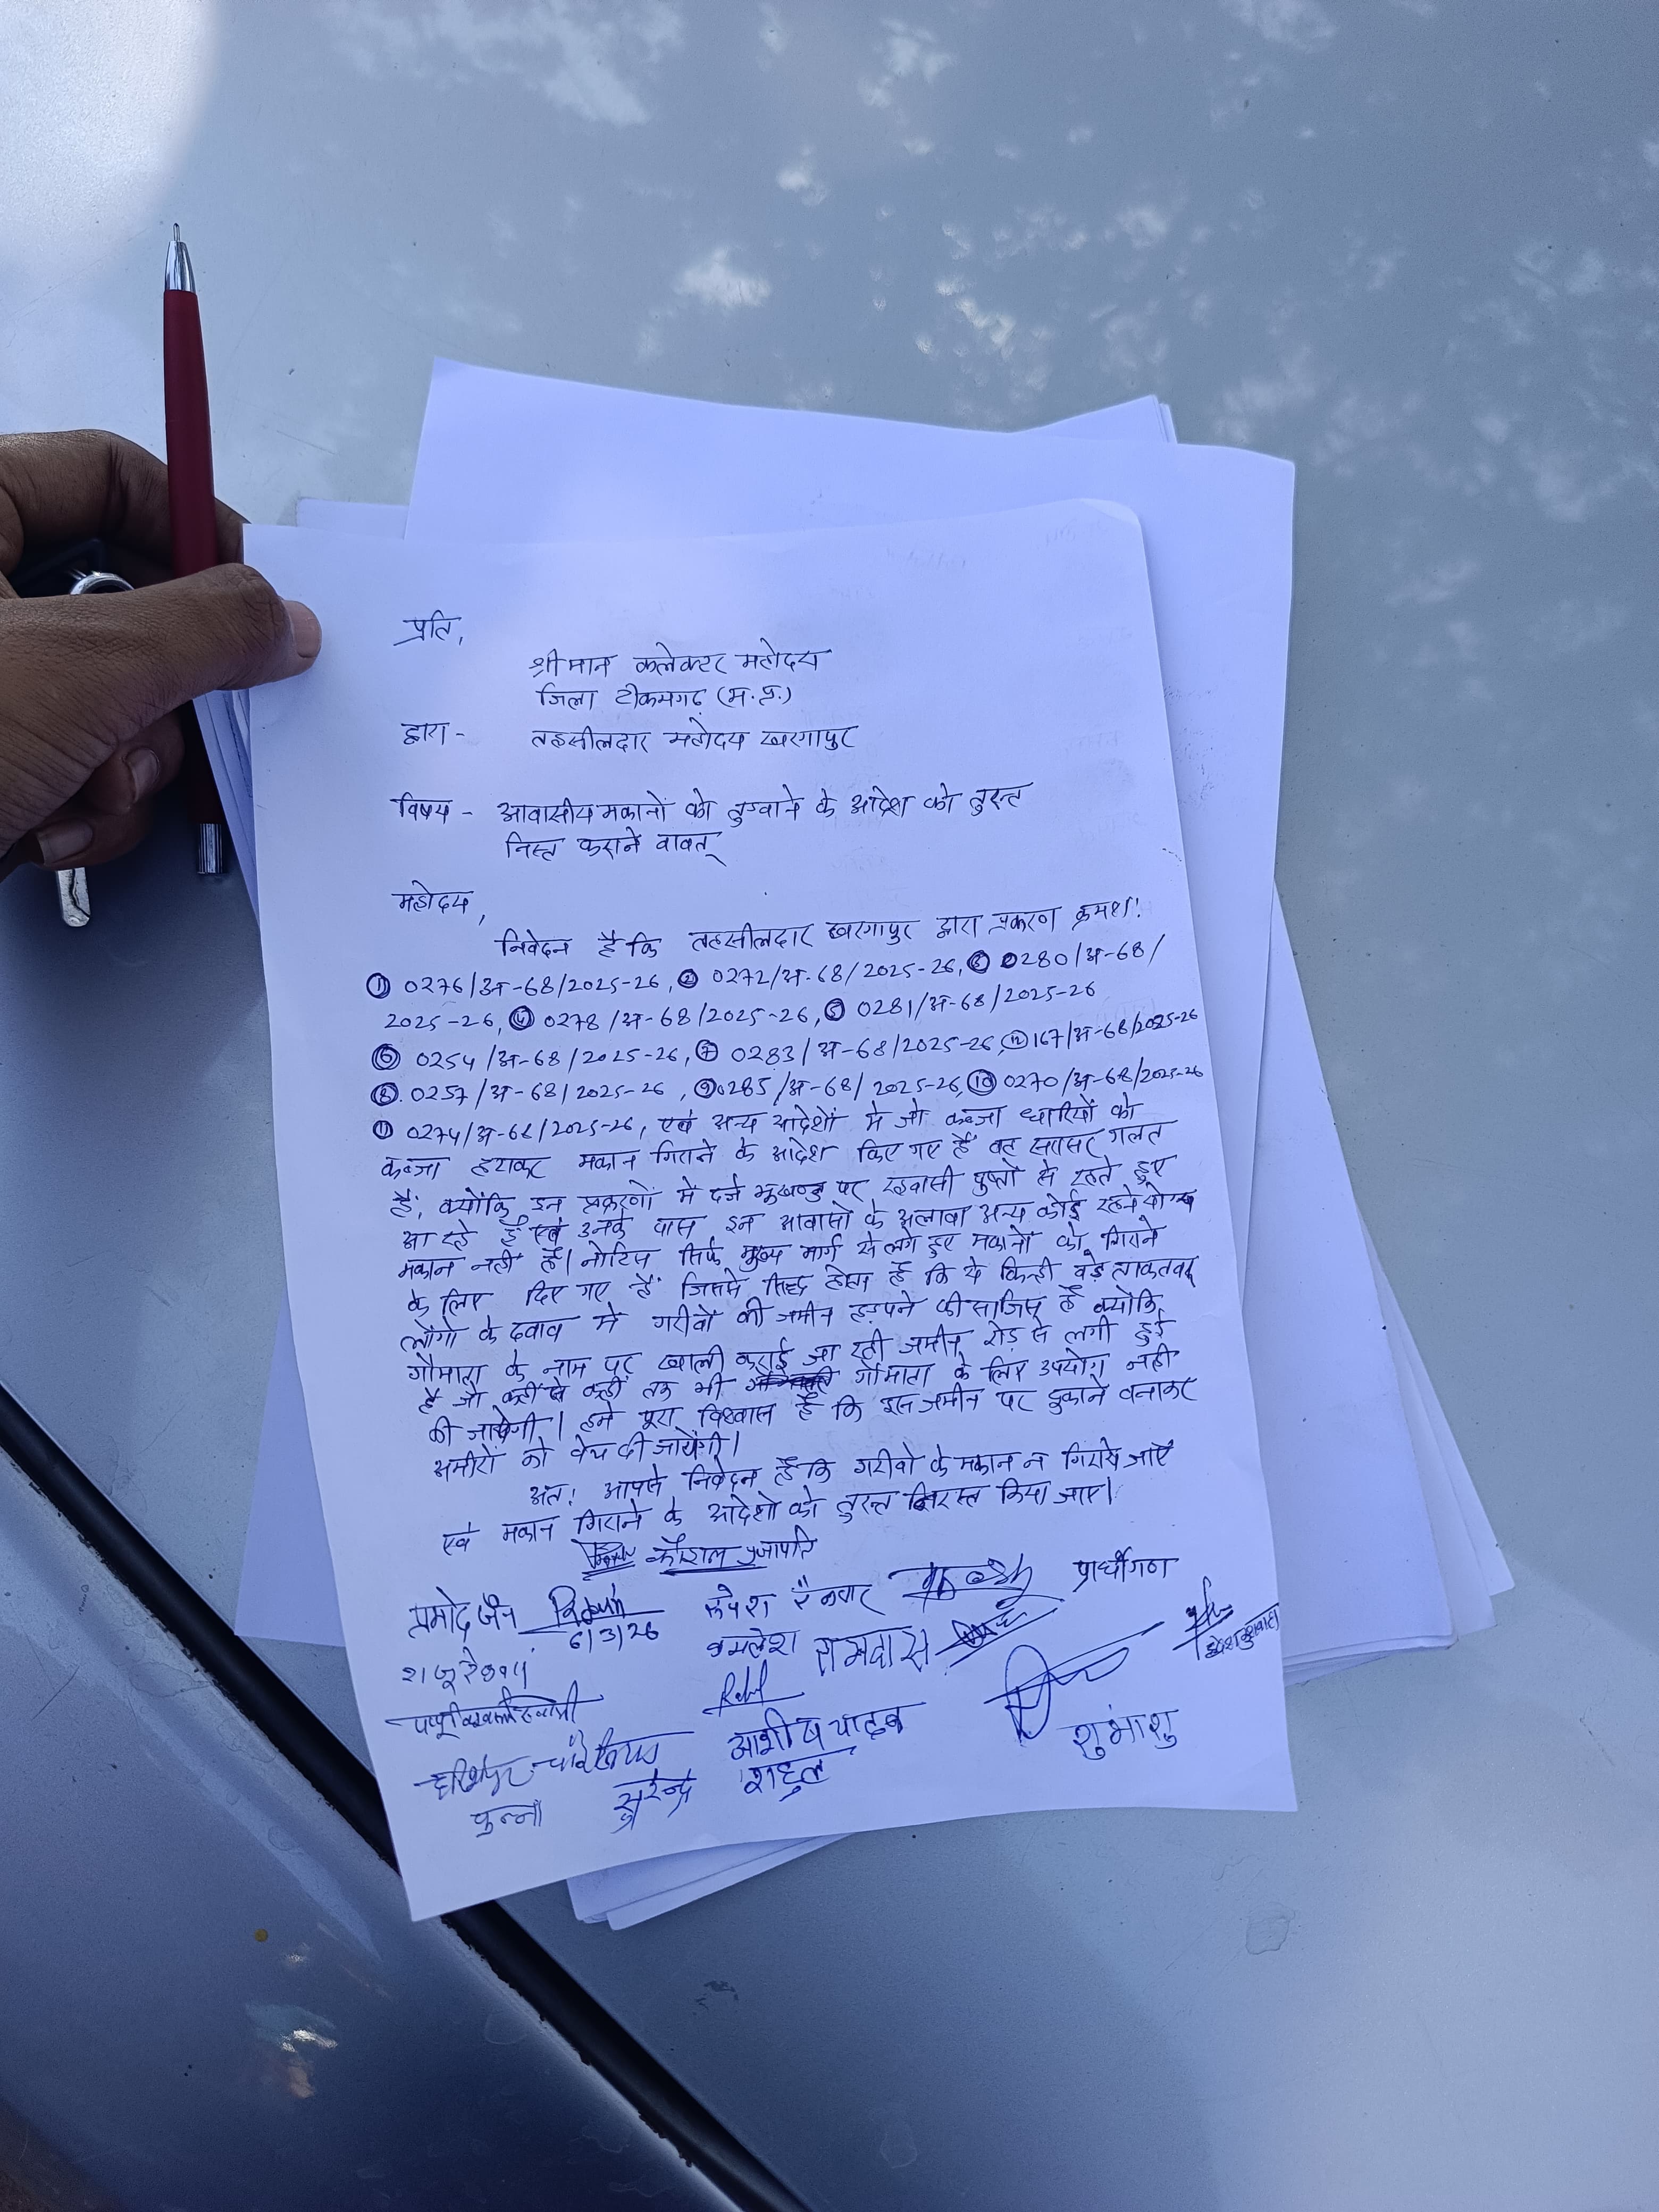 प्रति,
श्रीमान कलेक्टर महोदय
जिला टीकमगढ़ (म.प्र.)
द्वारा - तहसीलदार महोदय खरगापुर
विषय - आवासीय मकानों को तुड़वाने के आदेश को तुरन्त
निरस्त कराने वावत्
महोदय,
निवेदन है कि तहसीलदार खरगापुर द्वारा प्रकरण क्रमशः
① 0276/अ-68/2025-26, ② 0272/अ-68/2025-26, ③ 0280/अ-68/
2025-26, ④ 0278/अ-68/2025-26, ⑤ 0281/अ-68/2025-26
⑥ 0254/अ-68/2025-26, ⑦ 0283/अ-68/2025-26, ⑫ 167/अ-68/2025-26
⑧ 0257/अ-68/2025-26, ⑨ 0285/अ-68/2025-26, ⑩ 0270/अ-68/2025-26
⑪ 0274/अ-68/2025-26, एवं अन्य आदेशों मे जो कब्जा धारियों को
कब्जा हटाकर मकान गिराने के आदेश किए गए हैं वह सरासर गलत
हैं, क्योंकि इन प्रकरणों मे दर्ज भूखण्ड पर रहवासी पुस्तो से रहते हुए
आ रहे हैं एवं उनके पास इन आवासो के अलावा अन्य कोई रहने योग्य
मकान नहीं हैं। नोटिस सिर्फ मुख्य मार्ग से लगे हुए मकानों को गिराने
के लिए दिए गए हैं जिससे सिद्ध होता है कि ये किन्ही वड़े ताकतवर
लोगो के दवाव मे गरीवों की जमीन हड़पने की साजिस हैं क्योंकि
गौमाता के नाम पर खाली कराई जा रही जमीन रोड़ से लगी हुई
है जो कहीं से कहीं तक भी गौमाता के लिए उपयोग नही
की जायेगी। हमे पूरा विश्वास हैं कि इस जमीन पर दुकाने वनाकर
अमीरों को वेच दी जायेंगी।
अतः आपसे निवेदन हैं कि गरीवो के मकान न गिराये जाएँ
एवं मकान गिराने के आदेशो को तुरन्त निरस्त किया जाए।
कौशल प्रजापति
प्रमोद जैन रूपेश रैकवार प्रार्थीगण
6/3/26
कमलेश रामदास
राजू रैकवार
आशीष यादव शुभांशु
मुन्ना सुरेन्द्र राहुल